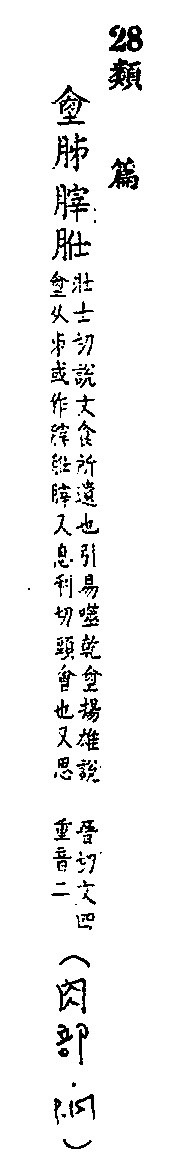 28類 篇
𦚈胏䏝胾
壯士切說文食所遺也引易噬乾𦚈揚雄說
𦚈从𠂔或作䏝胾䏝又息利切頭會也又思
晉切文四
重音二
(肉部·P.151)